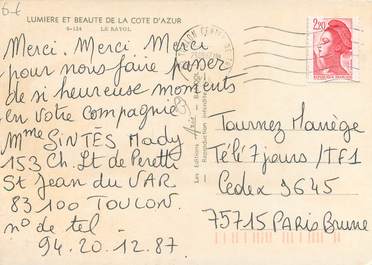 6-€
LUMIERE ET BEAUTE DE LA COTE D'AZUR
6-124 LE RAYOL
Merci. Merci. Merci
pour nous faire passer
de si heureuse moments
en votre compagnie
Mme SINTES Mady
153 Ch. Lt de Peretti
St Jean du VAR
83100 TOULON
no de tel -
94.20.12.87
TOULON
2,20
REPUBLIQUE FRANÇAISE
Tournez Manège
Télé 7 jours/TF1
Cedex 9645
75715 PARIS Brune
Les Editions
Reproduction interdite